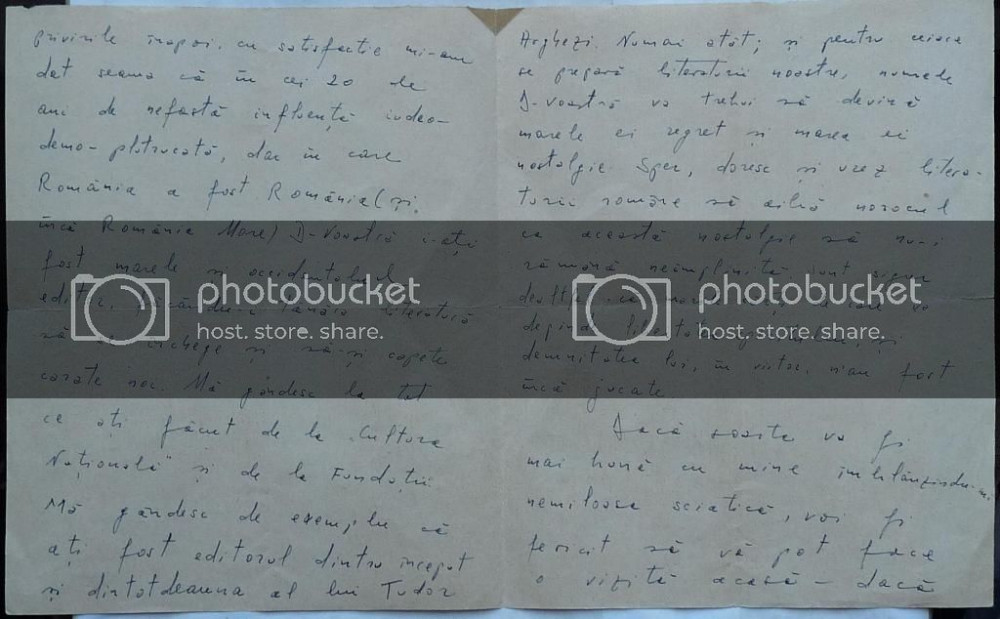 privirile înapoi, cu satisfacție mi-am
dat seama că în cei 20 de
ani de nefastă influență iudeo-
demo-plutocrată, dar în care
România a fost România (și,
încă România Mare) D-Voastră i-ați
fost marele și occidentalul
editor, literatură
să se închege și să-și capete
Mă gândesc la tot
ce ați făcut de la „Cultura
Națională" și de la Fundații.
Mă gândesc de exemplu că
ați fost editorul dintru început
și dintotdeauna al lui Tudor
Arghezi. Numai atât; și pentru ceiace
se prepară literaturii noastre, numele
D-voastră va trebui să devină
marele ei regret și marea ei
nostalgie. Sper, doresc și urez litera-
turii române să aibă norocul
ca această nostalgie să nu-i
rămână neîmplinită. Sunt sigur
dealtfel că
depinde libertatea și
demnitatea lui, în viitor, n'au fost
încă jucate.
Dacă soarta va fi
mai bună cu mine îmblânzindu-mi
nemiloasa sciatică, voi fi
fericit să vă pot face
o vizită acasă – dacă
photobucket
host. store. share.
photobucket
host. store. share.